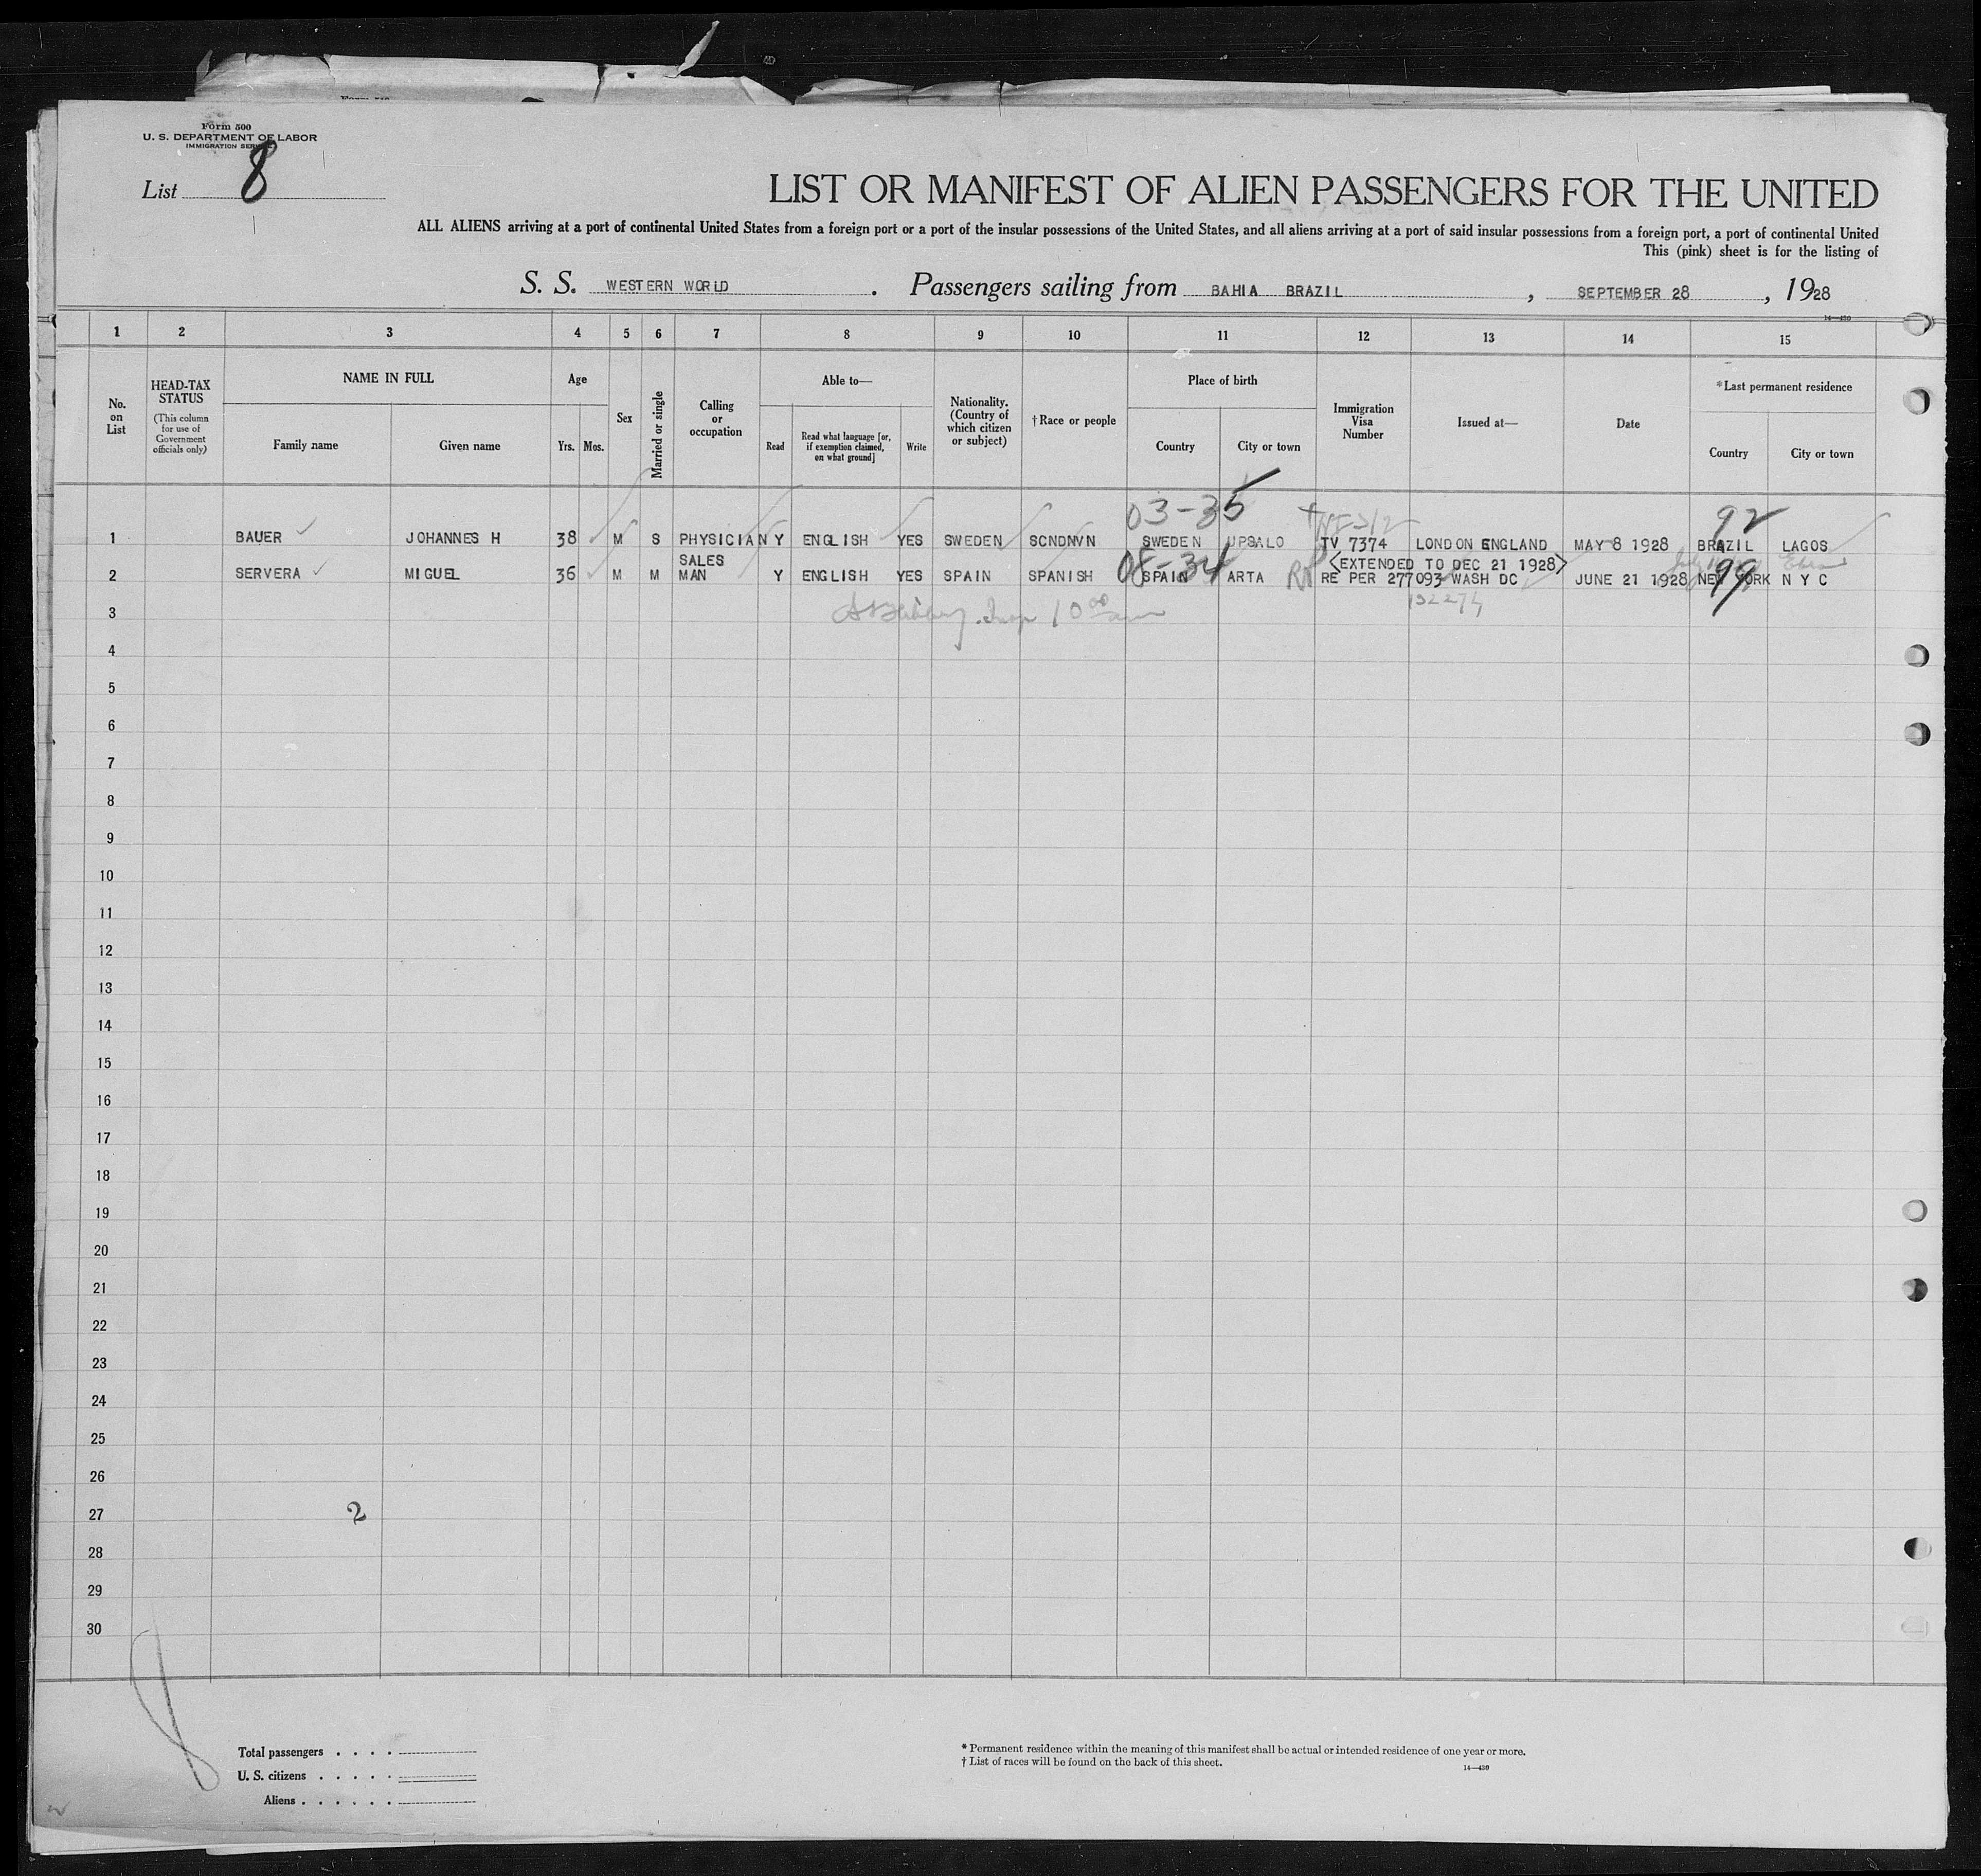 Form 500
U. S. DEPARTMENT OF LABOR
IMMIGRATION SERVICE
List 8
LIST OR MANIFEST OF ALIEN PASSENGERS FOR THE UNITED
ALL ALIENS arriving at a port of continental United States from a foreign port or a port of the insular possessions of the United States, and all aliens arriving at a port of said insular possessions from a foreign port, a port of continental United
This (pink) sheet is for the listing of
S. S. WESTERN WORLD . Passengers sailing from BAHIA BRAZIL , SEPTEMBER 28 , 1928
14—430
1 2 3 4 5 6 7 8 9 10 11 12 13 14 15
No. on List
HEAD-TAX STATUS
(This column for use of Government officials only)
NAME IN FULL
Family name
Given name
Age
Yrs. Mos.
Sex
Married or single
Calling or occupation
Able to—
Read
Read what language [or, if exemption claimed, on what ground]
Write
Nationality. (Country of which citizen or subject)
† Race or people
Place of birth
Country
City or town
Immigration Visa Number
Issued at—
Date
*Last permanent residence
Country
City or town
03-35 92
1 BAUER JOHANNES H 38 M S PHYSICIAN Y ENGLISH YES SWEDEN SCNDNVN SWEDEN UPSALO TV 7374 LONDON ENGLAND MAY 8 1928 BRAZIL LAGOS
08-34 <EXTENDED TO DEC 21 1928> 99
2 SERVERA MIGUEL 36 M M SALES MAN Y ENGLISH YES SPAIN SPANISH SPAIN ARTA RE PER 277093 WASH DC JUNE 21 1928 NEW YORK N Y C
3
4
5
6
7
8
9
10
11
12
13
14
15
16
17
18
19
20
21
22
23
24
25
26
27 2
28
29
30
Total passengers . . . .
U. S. citizens . . . . .
Aliens . . . . . .
* Permanent residence within the meaning of this manifest shall be actual or intended residence of one year or more.
† List of races will be found on the back of this sheet.
14—430